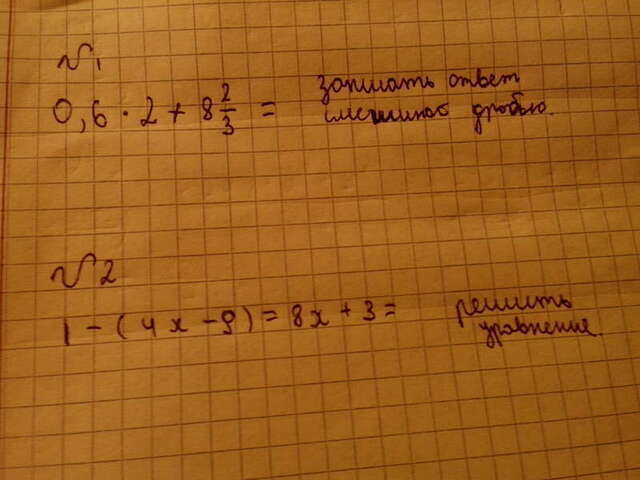 №1
0,6 · 2 + 8 2/3 = записать ответ
смешаной дробью.
№2
1 - (4x - 9) = 8x + 3 = решить
уравнение.